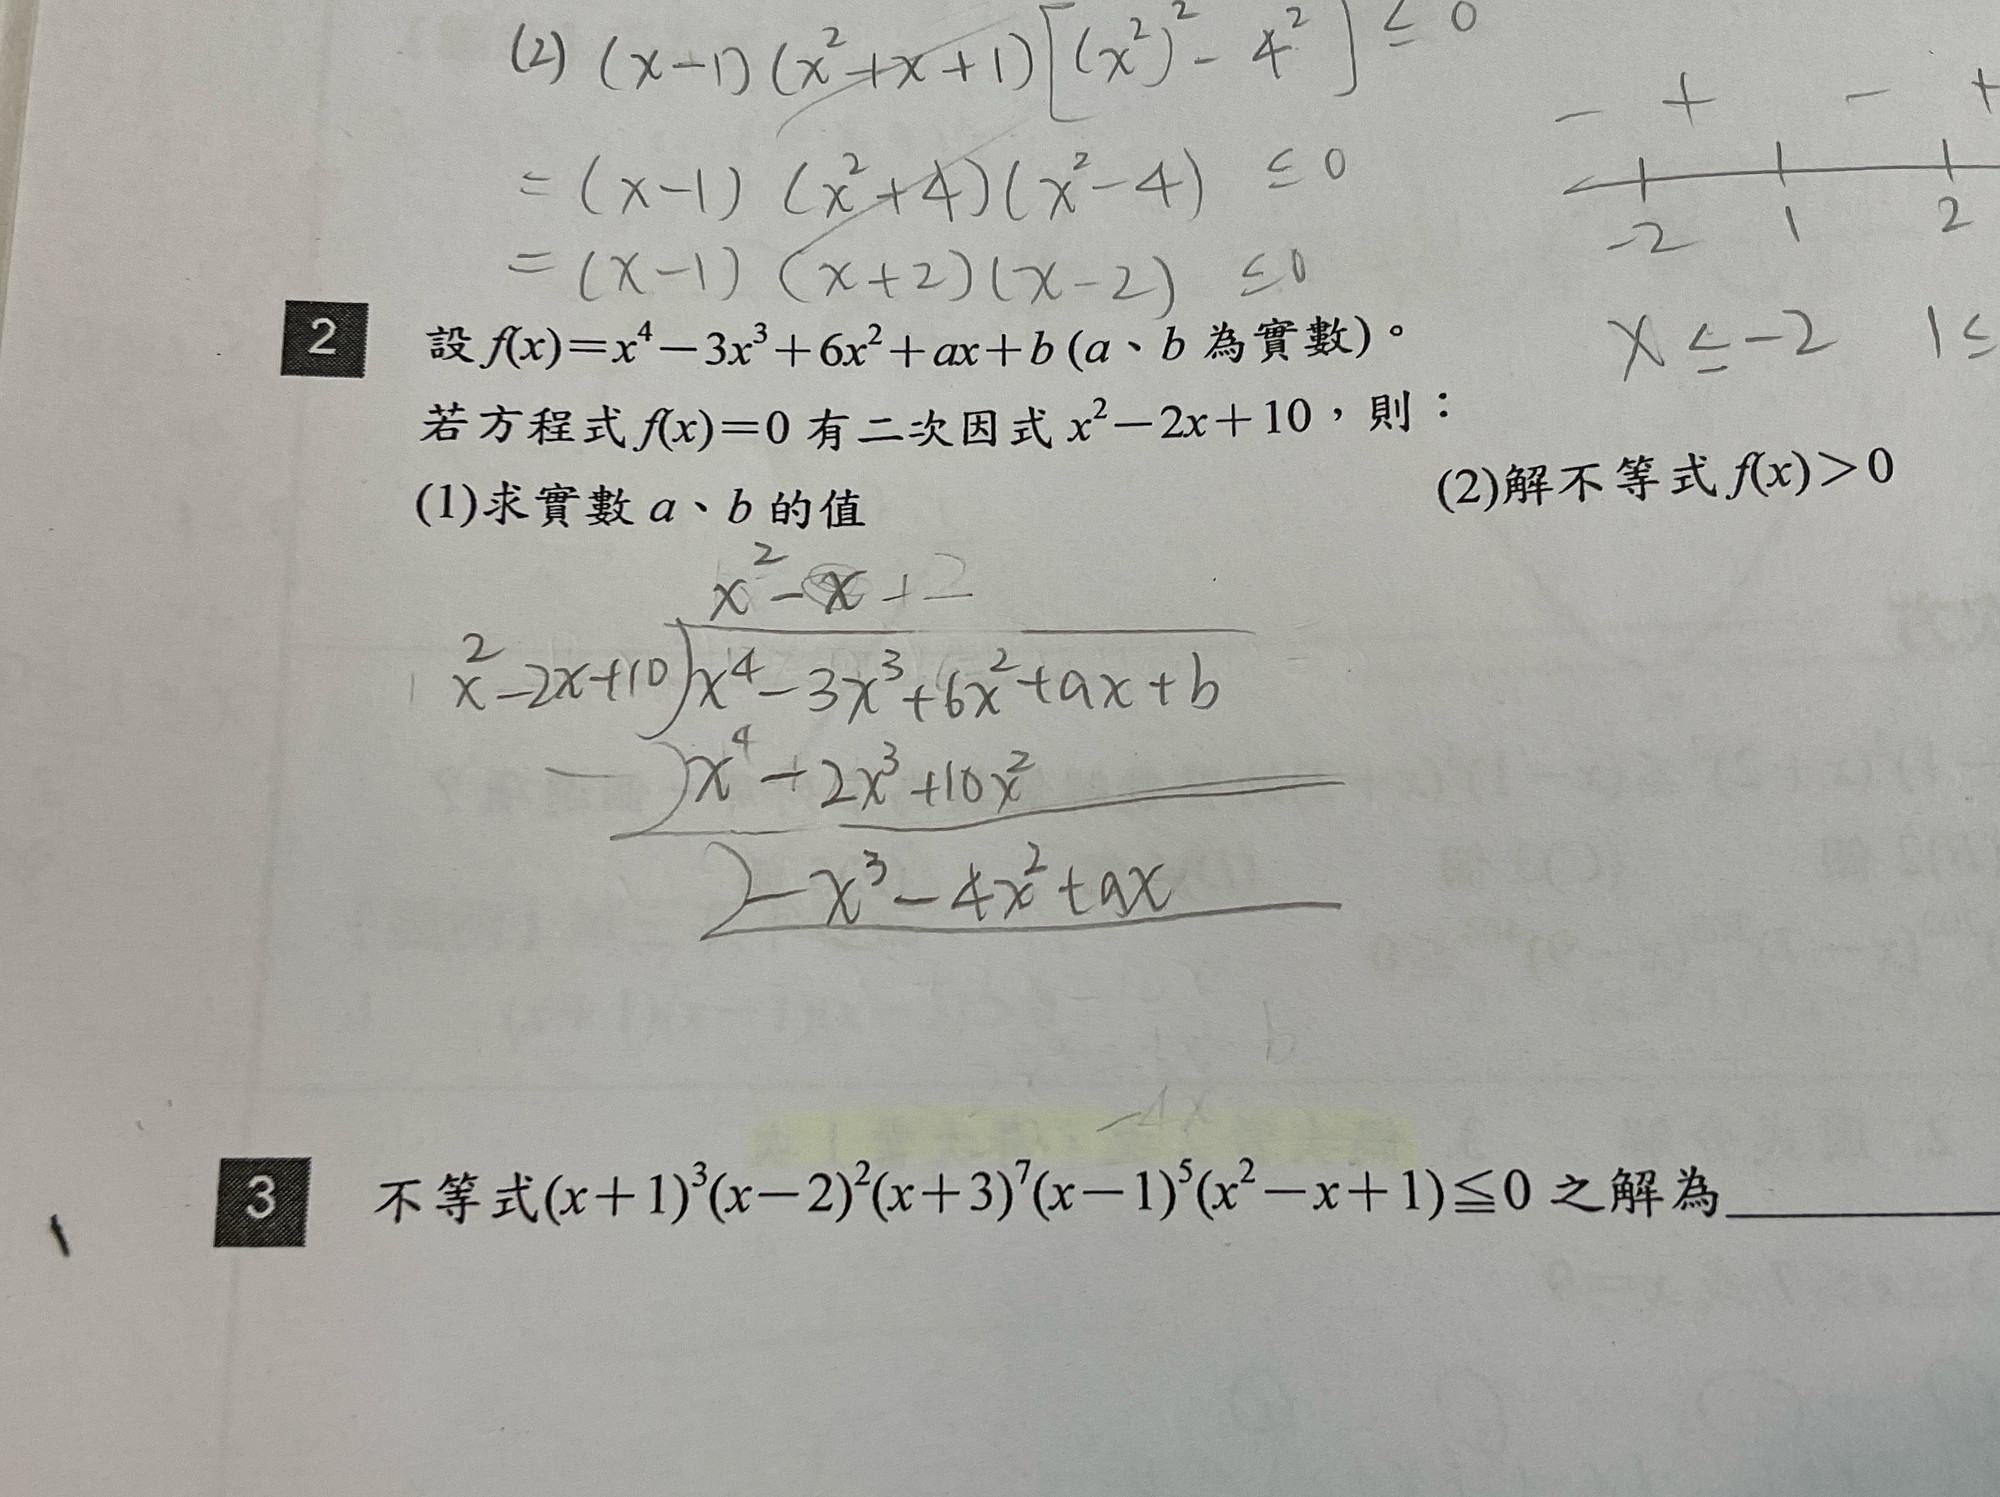 (2) (x-1)(x²+x+1)[(x²)²-4²]≤0
- + - +
=(x-1)(x²+4)(x²-4) ≤0
-2 1 2
=(x-1)(x+2)(x-2) ≤0
x≤-2 1≤
2 設f(x)=x⁴-3x³+6x²+ax+b(a、b為實數)。
若方程式f(x)=0有二次因式x²-2x+10,則:
(1)求實數a、b的值 (2)解不等式f(x)>0
x²-x+2
x²-2x+10)x⁴-3x³+6x²+ax+b
-)x⁴-2x³+10x²
)-x³-4x²+ax
3 不等式(x+1)³(x-2)²(x+3)⁷(x-1)⁵(x²-x+1)≦0之解為